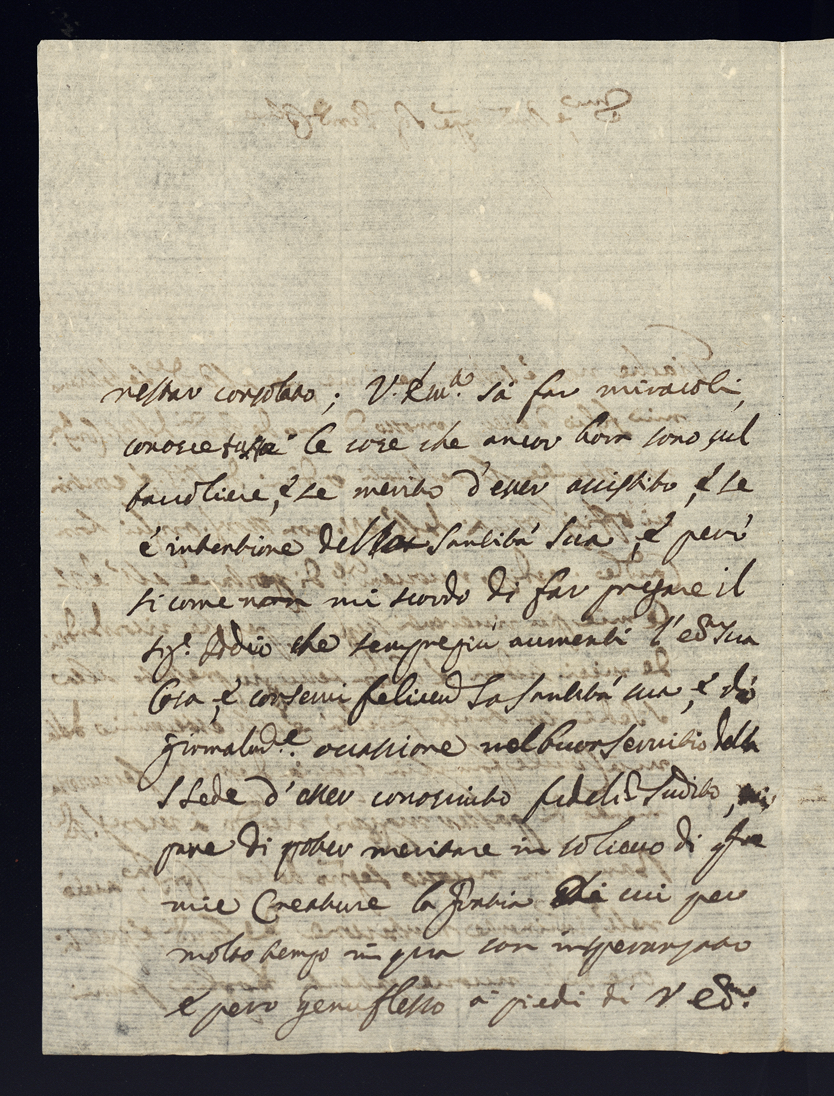 restar consolato; V. Em.ª sà far miracoli,
conosce tutte le cose che ancor hora sono sul
tavoliere, e se merito d'esser assistito, e se
è intentione della Santità Sua, e però
si come non mi scordo di far pregare il
Sig.r Iddio che sempre più aumenti l'ecc.ma sua
Casa, e conservi la Santità sua, e dà
occassione nel buon servitio della
S Sede d'esser conosciuto fedeliss.mo sudito, mi
pare di poter meritare in solievo di q.ste
mie Creature la gratia di cui per
molto tempo in qua son insperanzato
e però genuflesso a piedi di V